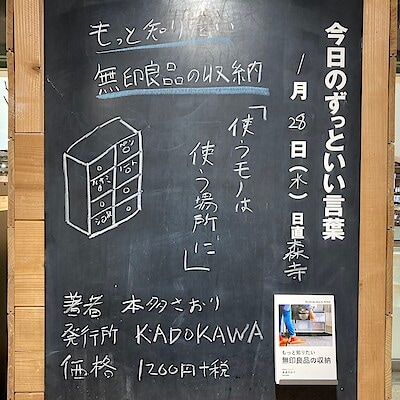 今日のずっといい言葉
1月28日(木) 日直 森寺
もっと知りたい
無印良品の収納
「使うモノは
使う場所に」
著者 本多さおり
発行所 KADOKAWA
価格 1200円+税
もっと知りたい
無印良品の収納